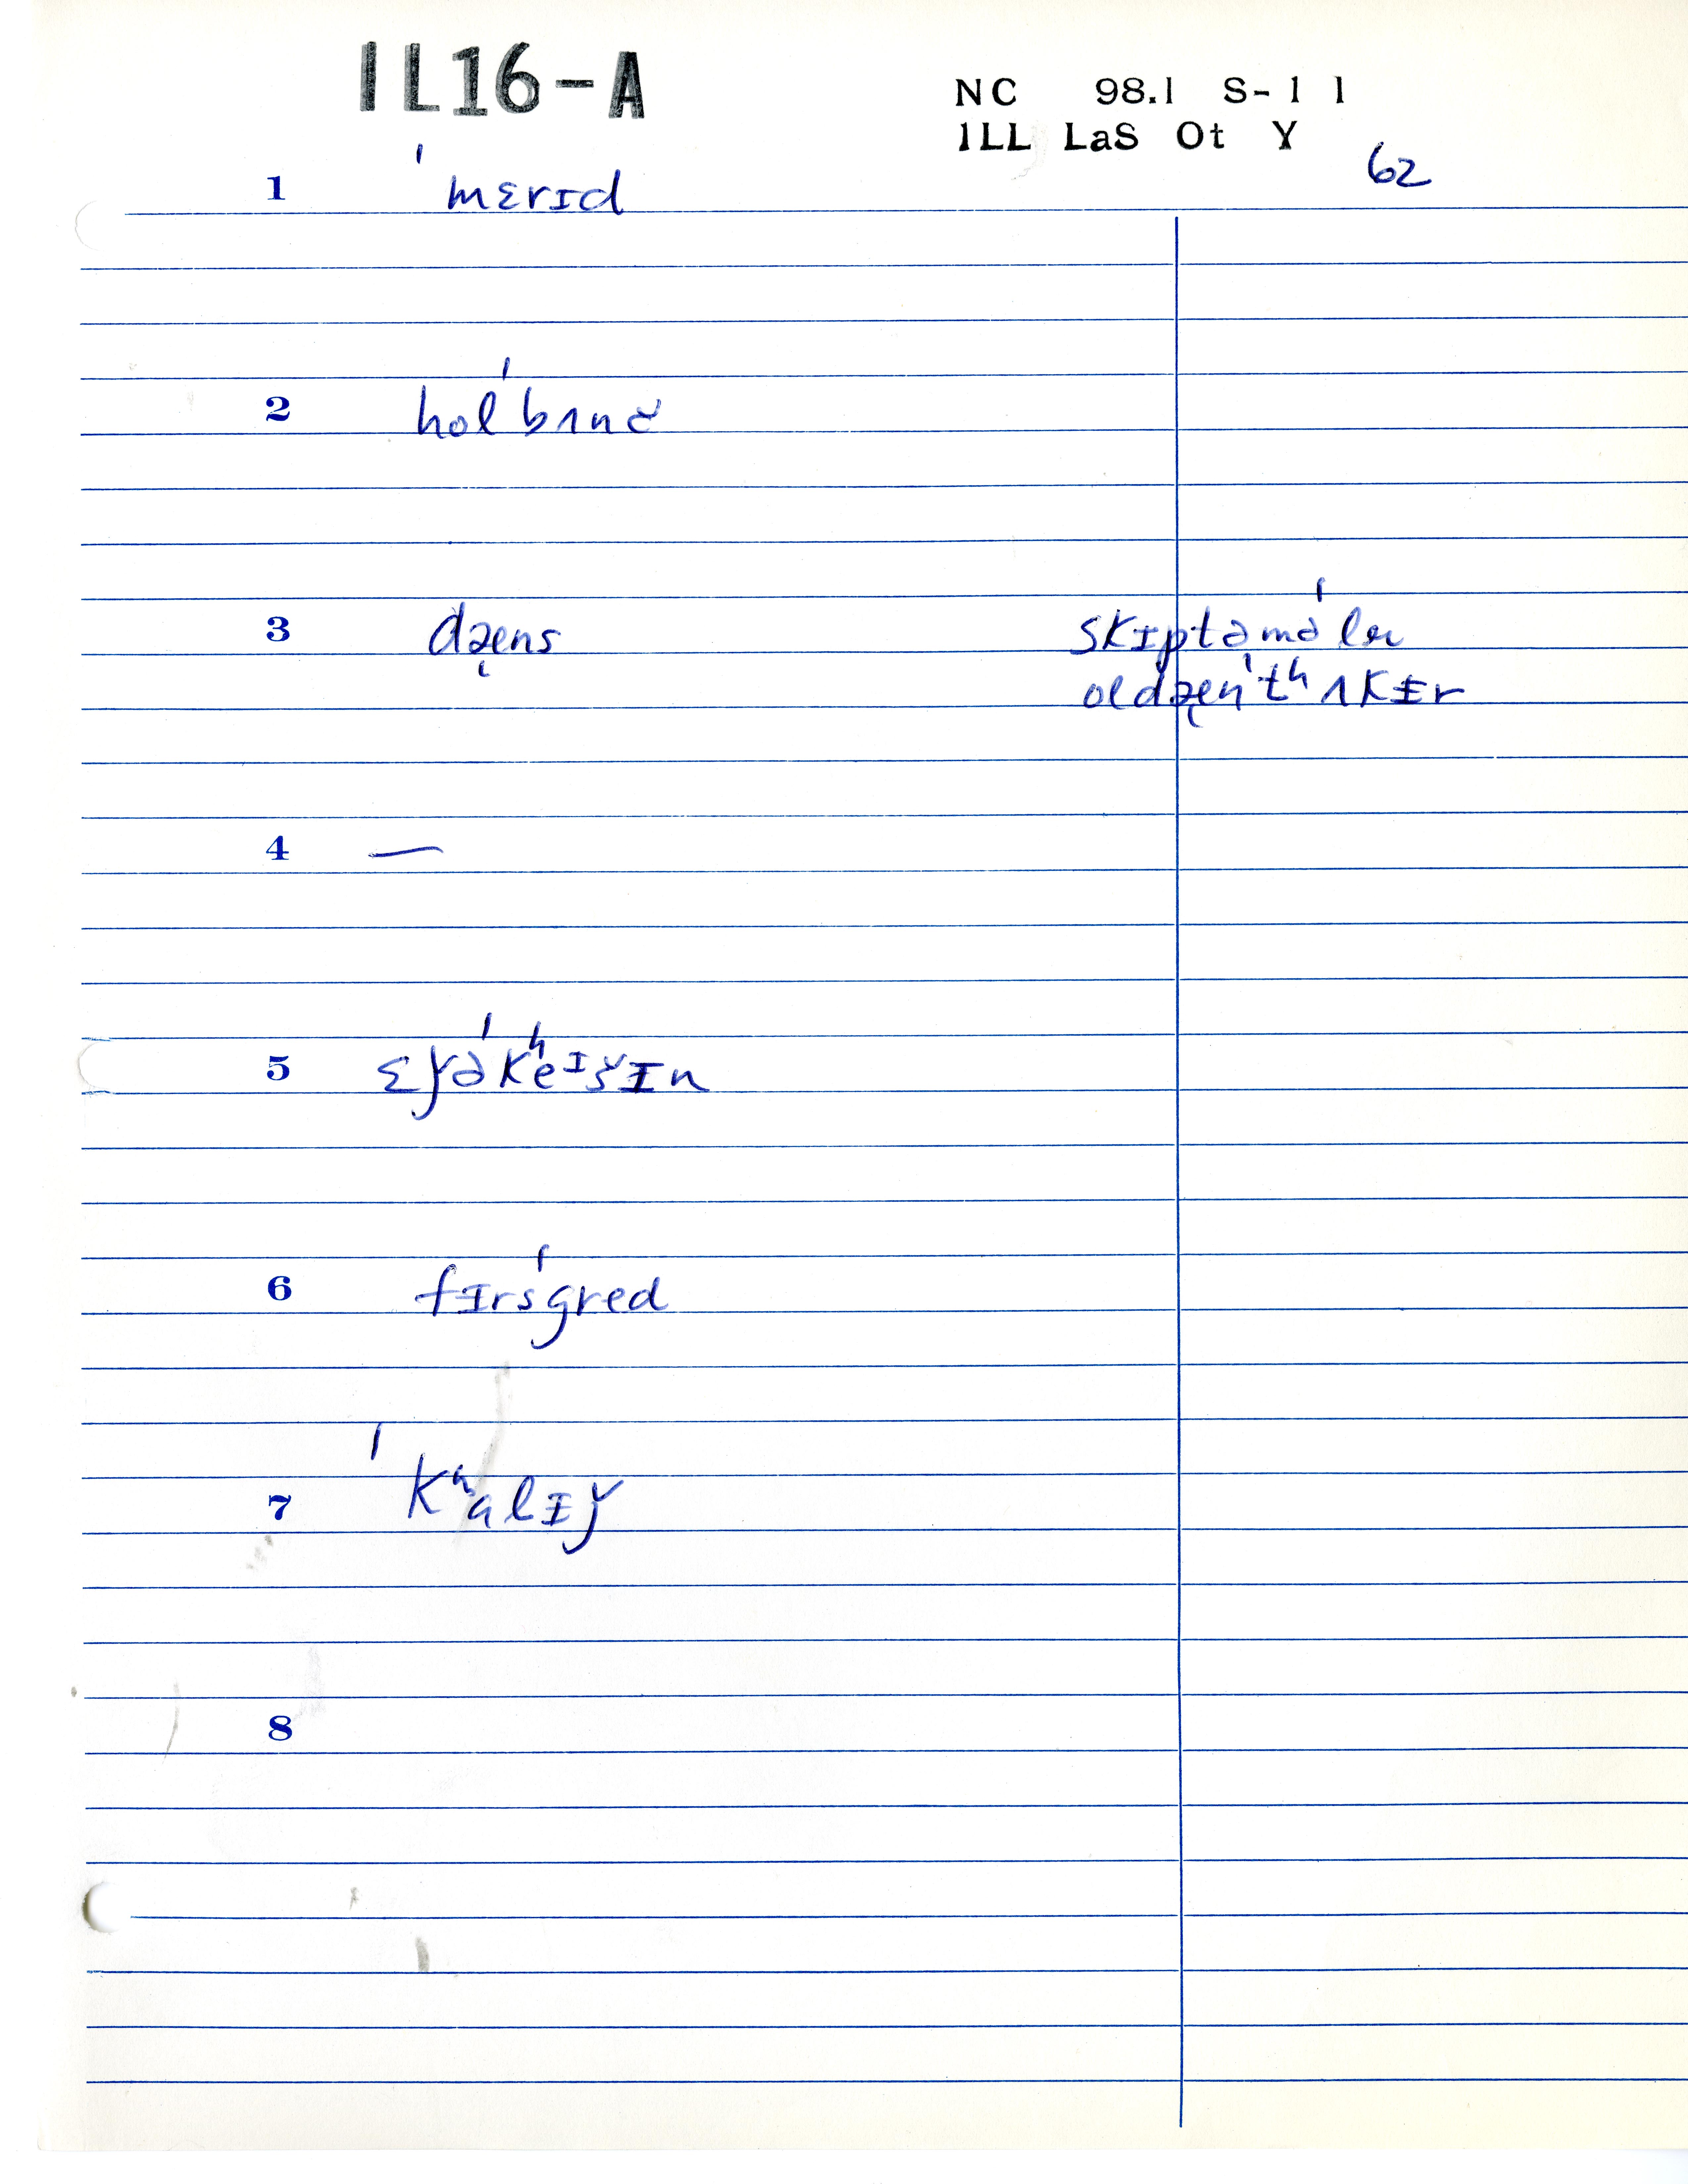 IL16-A
NC 98.1 S-11
ILL LaS Ot Y
62
1 ˈmɛrɪd
2 holˈbʌnč
3 dæns skɪptəməˈlu
oldæn ˈtʰʌkɛr
4 —
5 ɛǰəˈkʰeᶦšɪn
6 fɪrsˈgred
7 ˈkʰalɪǰ
8